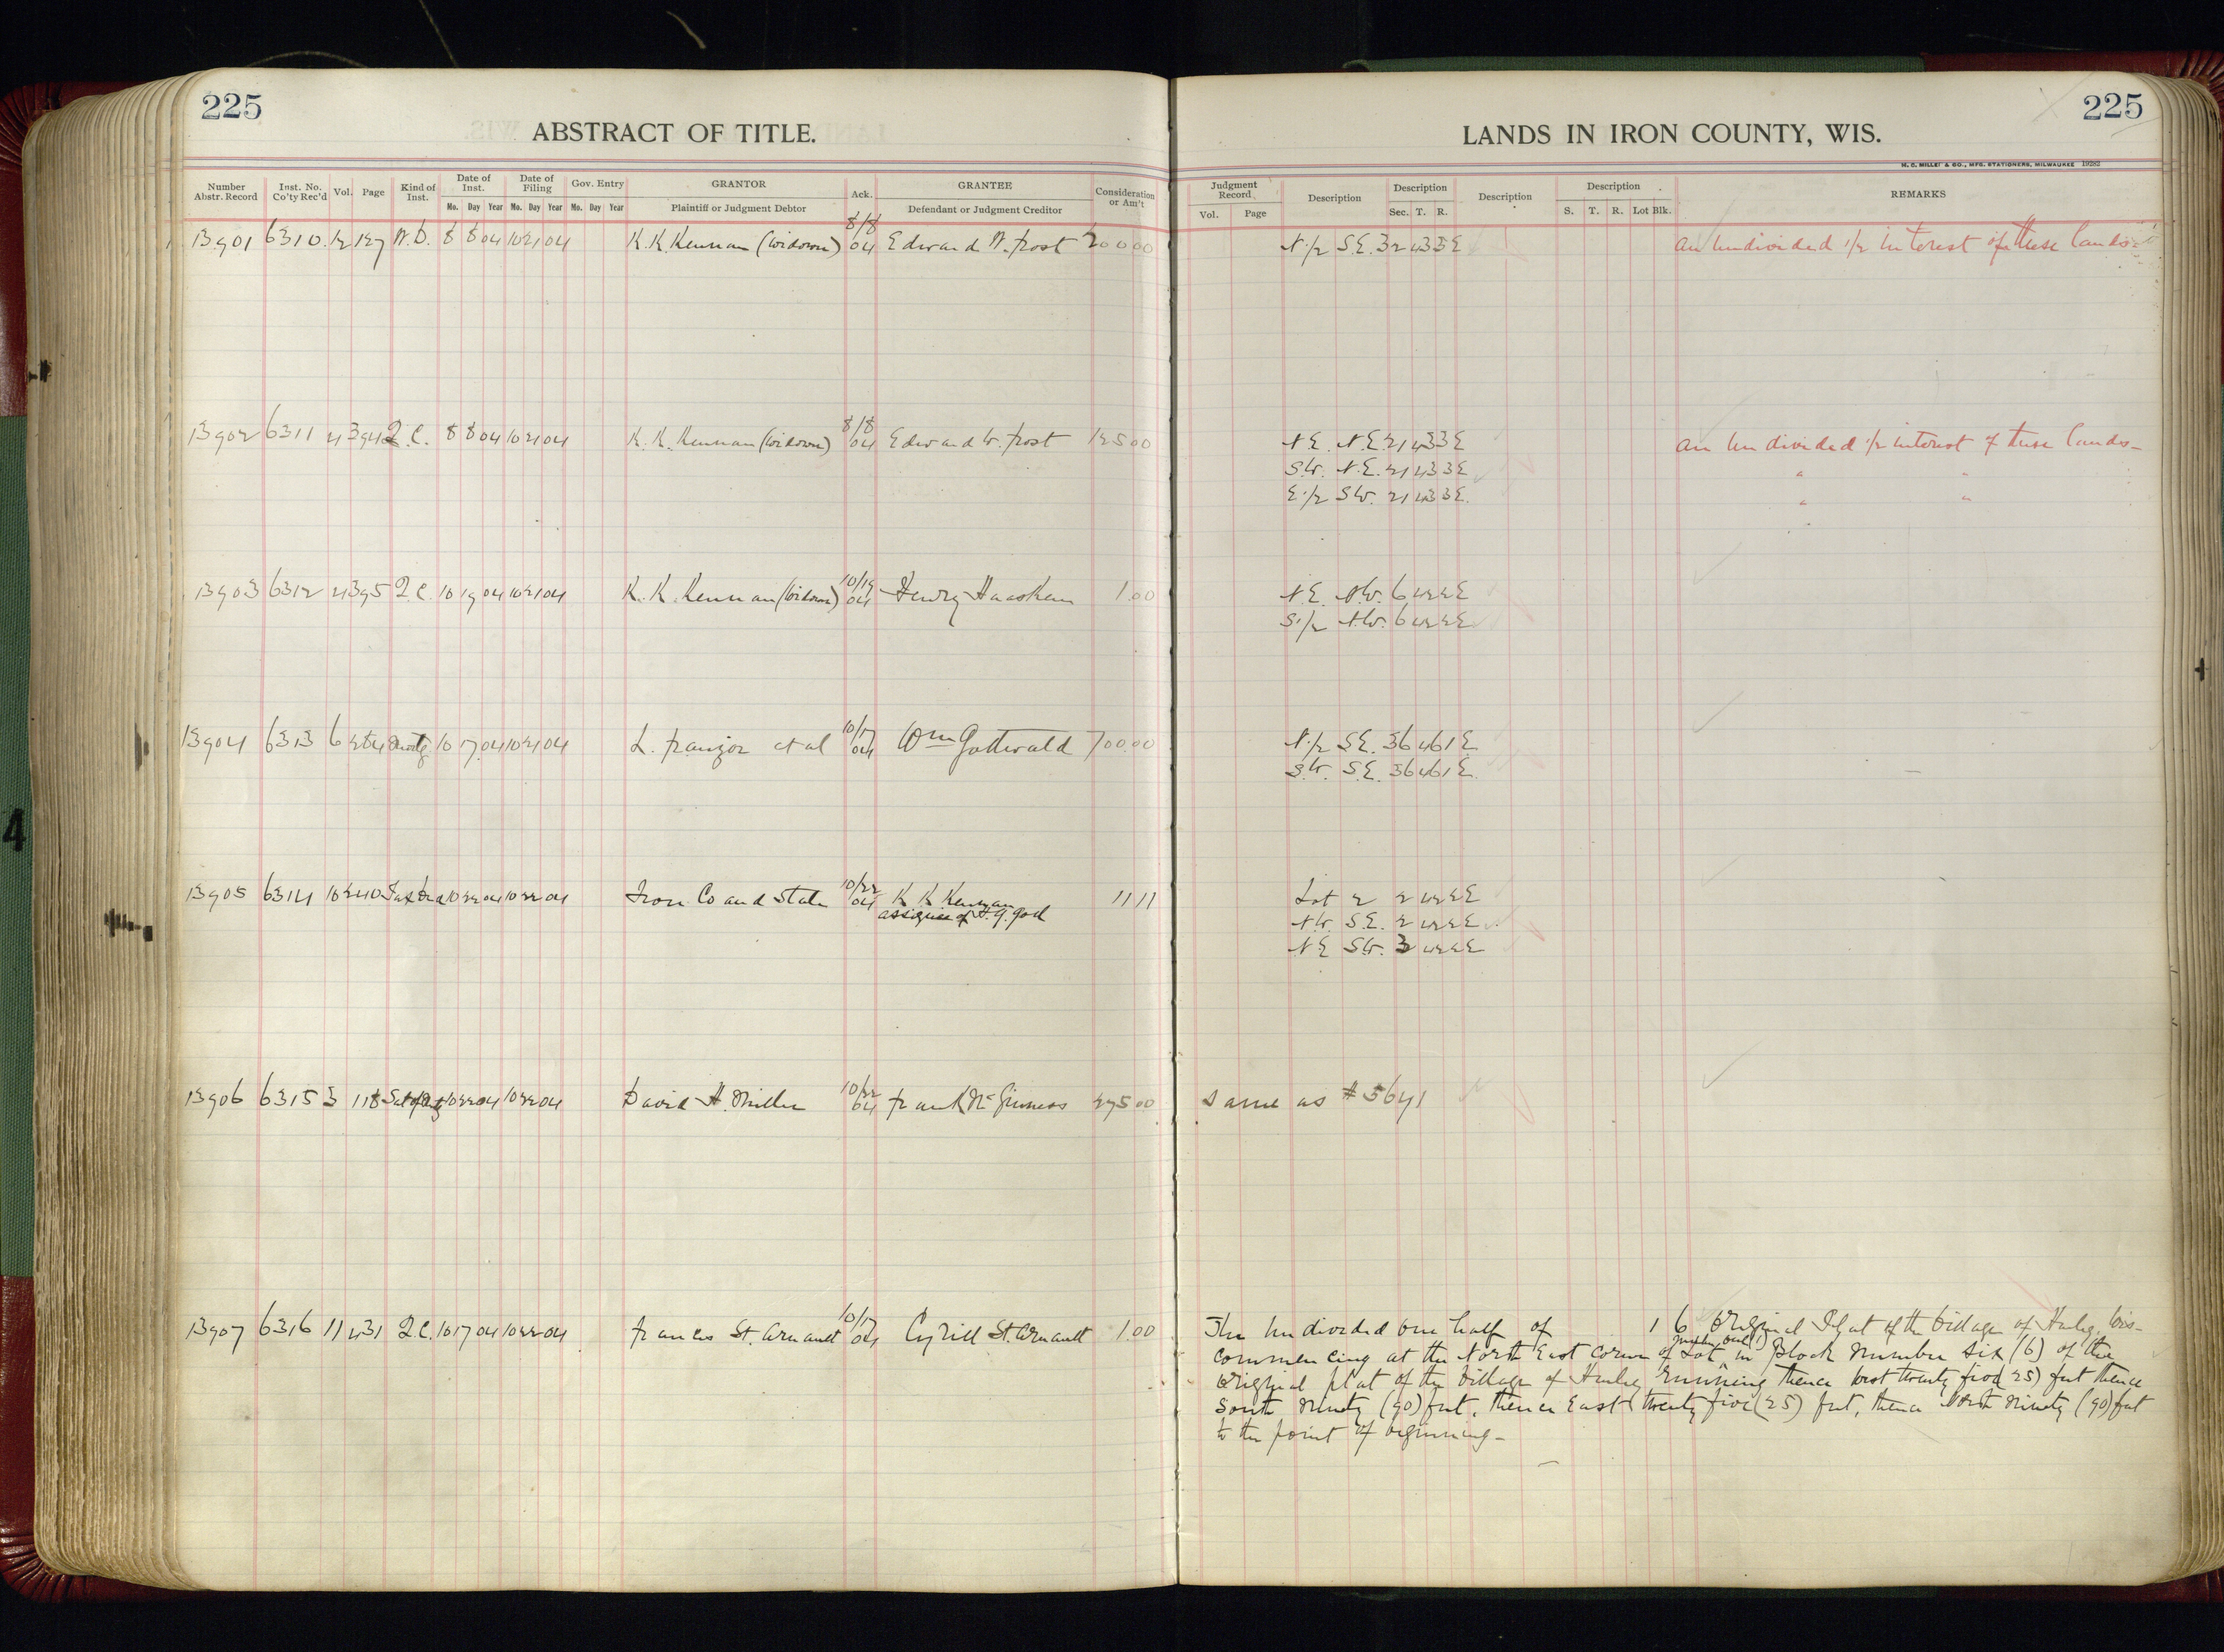 225
ABSTRACT OF TITLE.
Number Abstr. Record
Inst. No. Co'ty Rec'd
Vol.
Page
Kind of Inst.
Date of Inst.
Date of Filing
Gov. Entry
GRANTOR
Ack.
GRANTEE
Consideration or Am't
Mo. Day Year Mo. Day Year Mo. Day Year
Plaintiff or Judgment Debtor
Defendant or Judgment Creditor
13901 6310 12 127 W.D. 8 8 04 10 21 04 K. K. Kennan (widower) 8/8 04 Edward W. Frost 200.00
13902 6311 4 394 Q.C. 8 8 04 10 21 04 K. K. Kennan (widower) 8/8 04 Edward W. Frost 125.00
13903 6312 4 395 Q.C. 10 19 04 10 21 04 K. K. Kennan (widower) 10/19 04 Henry 1.00
13904 6313 6 284 Mortg 10 17 04 10 21 04 L. et al 10/17 04 Wm Gottwald 700.00
13905 6314 10 240 Tax Deed 10 22 04 10 22 04 Iron Co and State 10/22 04 K K Kennan 11 11
assignee of
13906 6315 3 118 10 22 04 10 22 04 David H. Miller 10/22 04 Frank McGinness 275.00
13907 6316 11 431 Q.C. 10 17 04 10 22 04 Francis St. Arnault 10/17 04 Cyrill St. Arnault 1.00
225
LANDS IN IRON COUNTY, WIS.
H. C. MILLER & CO., MFG. STATIONERS, MILWAUKEE 19282
Judgment Record
Description
Description
Description
Description
REMARKS
Vol. Page
Sec. T. R.
S. T. R. Lot Blk.
N.1/2 S.E. 32 43 3E an undivided 1/2 interest of these lands
N.E. N.E. 21 43 3E an undivided 1/2 interest of these lands
S.W. N.E. 21 43 3E " "
E.1/2 S.W. 21 43 3E " "
N.E. N.W. 6 42 2E
S.1/2 N.W. 6 42 2E
N.1/2 S.E. 36 46 1E
S.W. S.E. 36 46 1E
Lot 2 2 42 2E
N.W. S.E. 2 42 2E
N E S.W. 3 42 2E
Same as # 5641
The undivided one half of 1 6 Original Plat of the Village of Hurley, Wis-
commencing at the North East corner of Lot number one (1) in Block number six (6) of the
Original plat of the Village of Hurley running thence West twenty five (25) feet thence
South ninety (90) feet, thence East twenty five (25) feet, thence North ninety (90) feet
to the point of beginning-